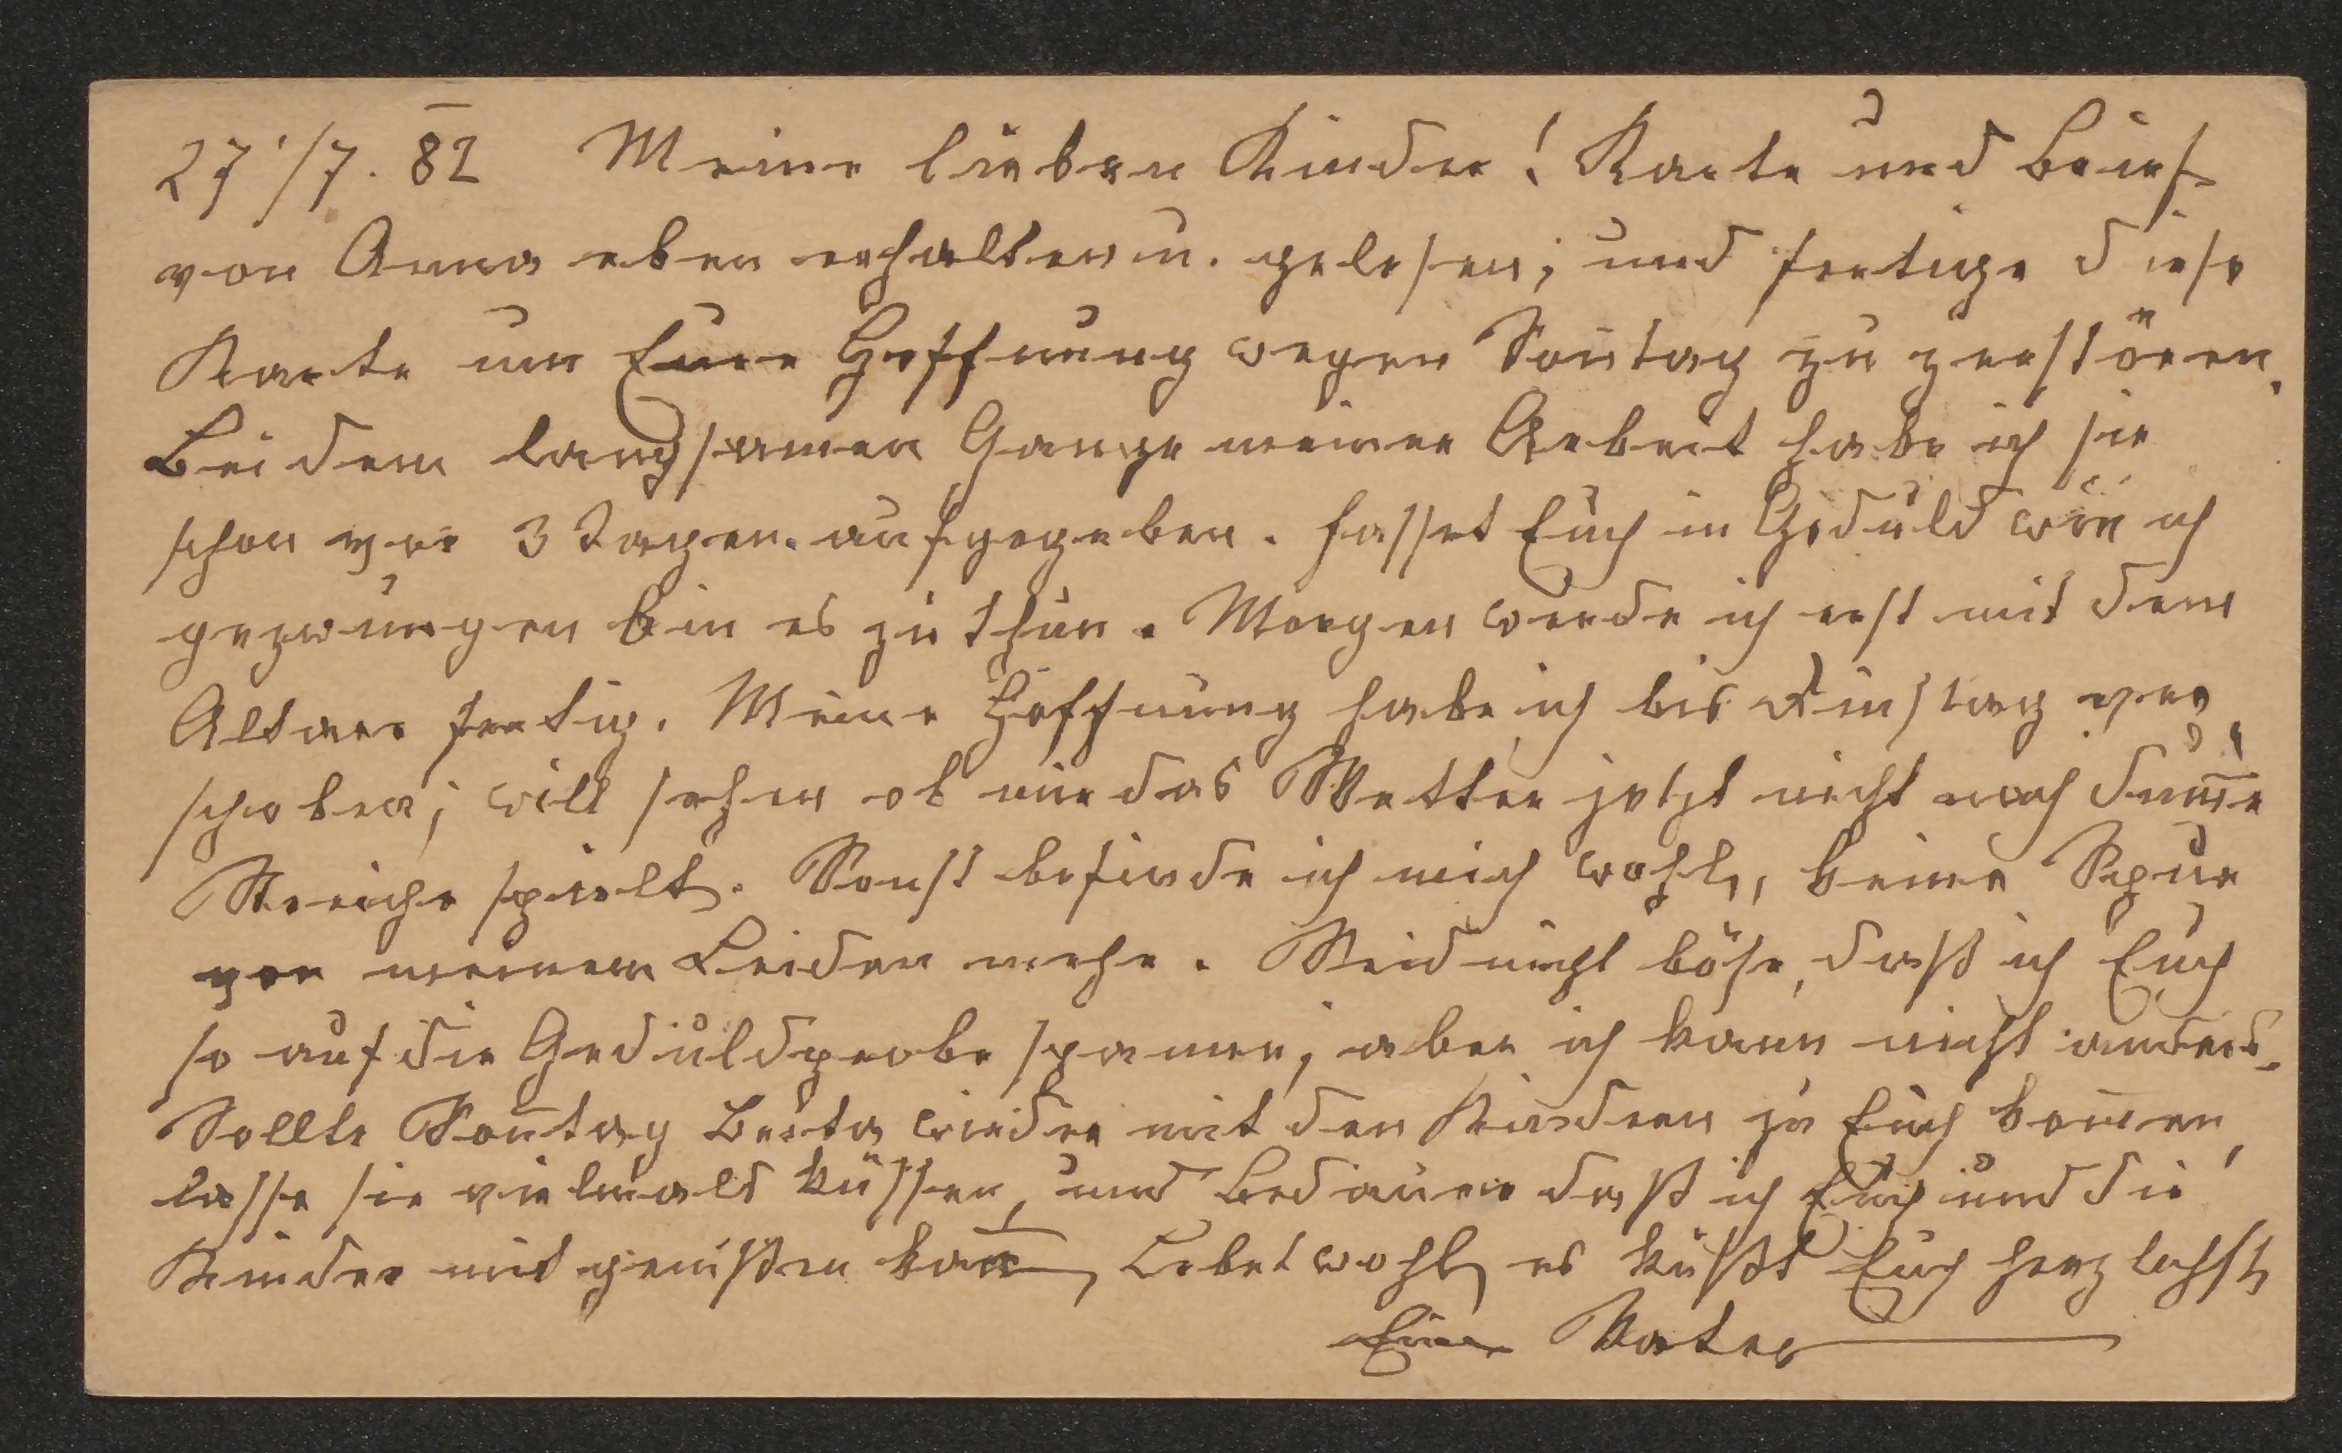 27'/7. 82 Meine lieben Kinder! Karte und Brief
von Anna eben erhalten u. gelesen; und fertige diese
Karte um Eure Hoffnung wegen Son̄tag zu zerstören.
Bei dem langsamen Gange meiner Arbeit habe ich sie
schon vor 3 Tagen aufgegeben. Fasset Euch in Geduld wie ich
gezwungen bin es zu thun. Morgen werde ich erst mit dem
Altare fertig. Meine Hoffnung habe ich bis Dinstag ver
schoben; will sehen ob mir das Wetter jetzt nicht noch dum̄e
Streiche spielt. Sonst befinde ich mich wohl, keine Spur
von meinem Leiden mehr. Seid nicht böse, daß ich Euch
so auf die Geduldprobe spanne; aber ich kann nicht anders.
Sollte Son̄tag Berta wieder mit den Kindern zu Euch kom̄en,
lasse sie vielmals küssen, und bedauere daß ich Euch und die
Kinder nit genißen kan̄, Lebet wohl es küßt Euch herzlichst
Euer Vater